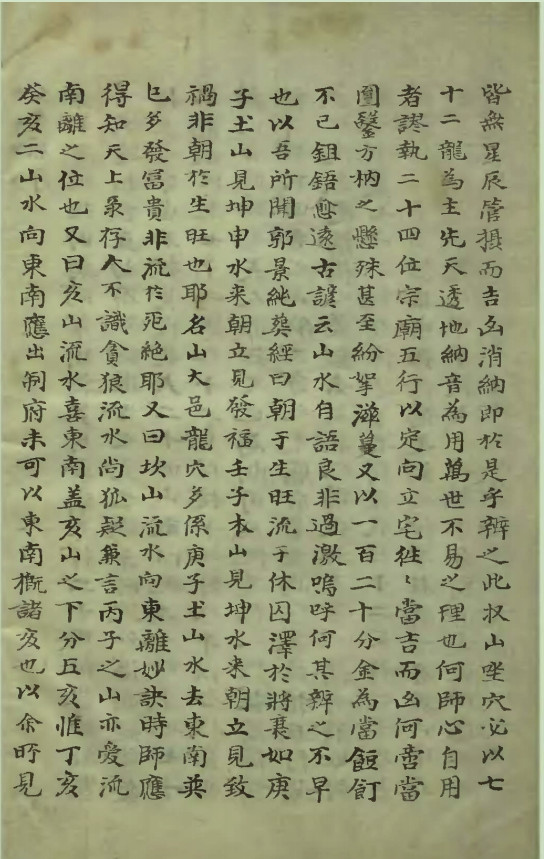 皆無星辰管攝而吉凶消納即於是乎辨之此扠山坐穴必以七
十二龍為主先天透地納音為用萬世不易之理也何師心自用
者謬執二十四位宗廟五行以定向立宅徃〻當吉而凶何啻當
圓鑿方枘之懸殊甚至紛挐滋蔓又以一百二十分金為當餖飣
不已鉏鋙愈遠古諺云山水自語良非過激嗚呼何其辨之不早
也以吾所聞郭景純葬經曰朝于生旺流于休囚澤於將衰如庚
子土山見坤申水来朝立見發福壬子木山見坤水来朝立見致
禍非朝於生旺也耶名山大邑龍穴多係庚子土山水去東南巽
巳多發富貴非流於死絶耶又曰坎山流水向東離妙訣時師應
得知天上衆存人不識貪狼流水尚狐疑兼言丙子之山亦愛流
南離之位也又曰亥山流水喜東南盖亥山之下分五亥惟丁亥
癸亥二山水向東南應出制府未可以東南概諸亥也以余所見